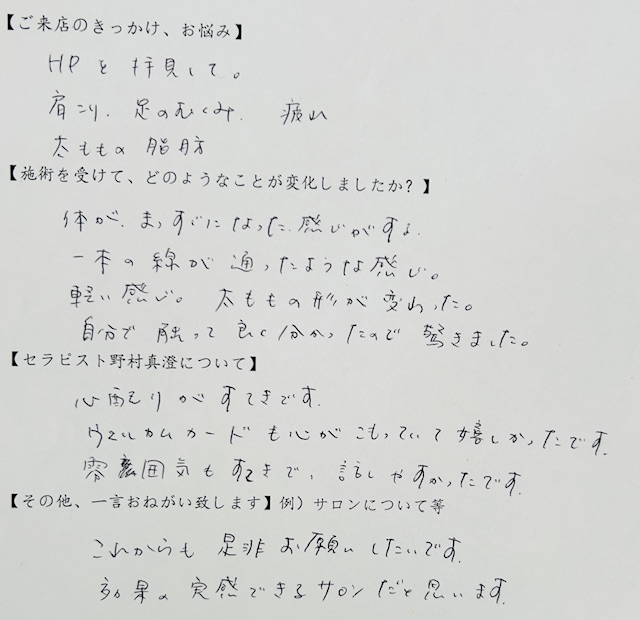 【ご来店のきっかけ、お悩み】
HPを拝見して。
肩こり. 足のむくみ. 疲れ
太ももの 脂肪
【施術を受けて、どのようなことが変化しましたか？】
体が. まっすぐになった感じがする.
一本の線が 通ったような感じ。
軽い感じ。 太ももの形が変わった。
自分で 触って 良く分かったので 驚きました。
【セラピスト野村真澄について】
心配りが すてきです.
ウェルカムカードも心がこもっていて嬉しかったです.
雰囲気もすてきで、話しやすかったです.
【その他、一言おねがい致します】例）サロンについて等
これからも 是非 お願いしたいです.
効果の 実感できるサロンだと思います.